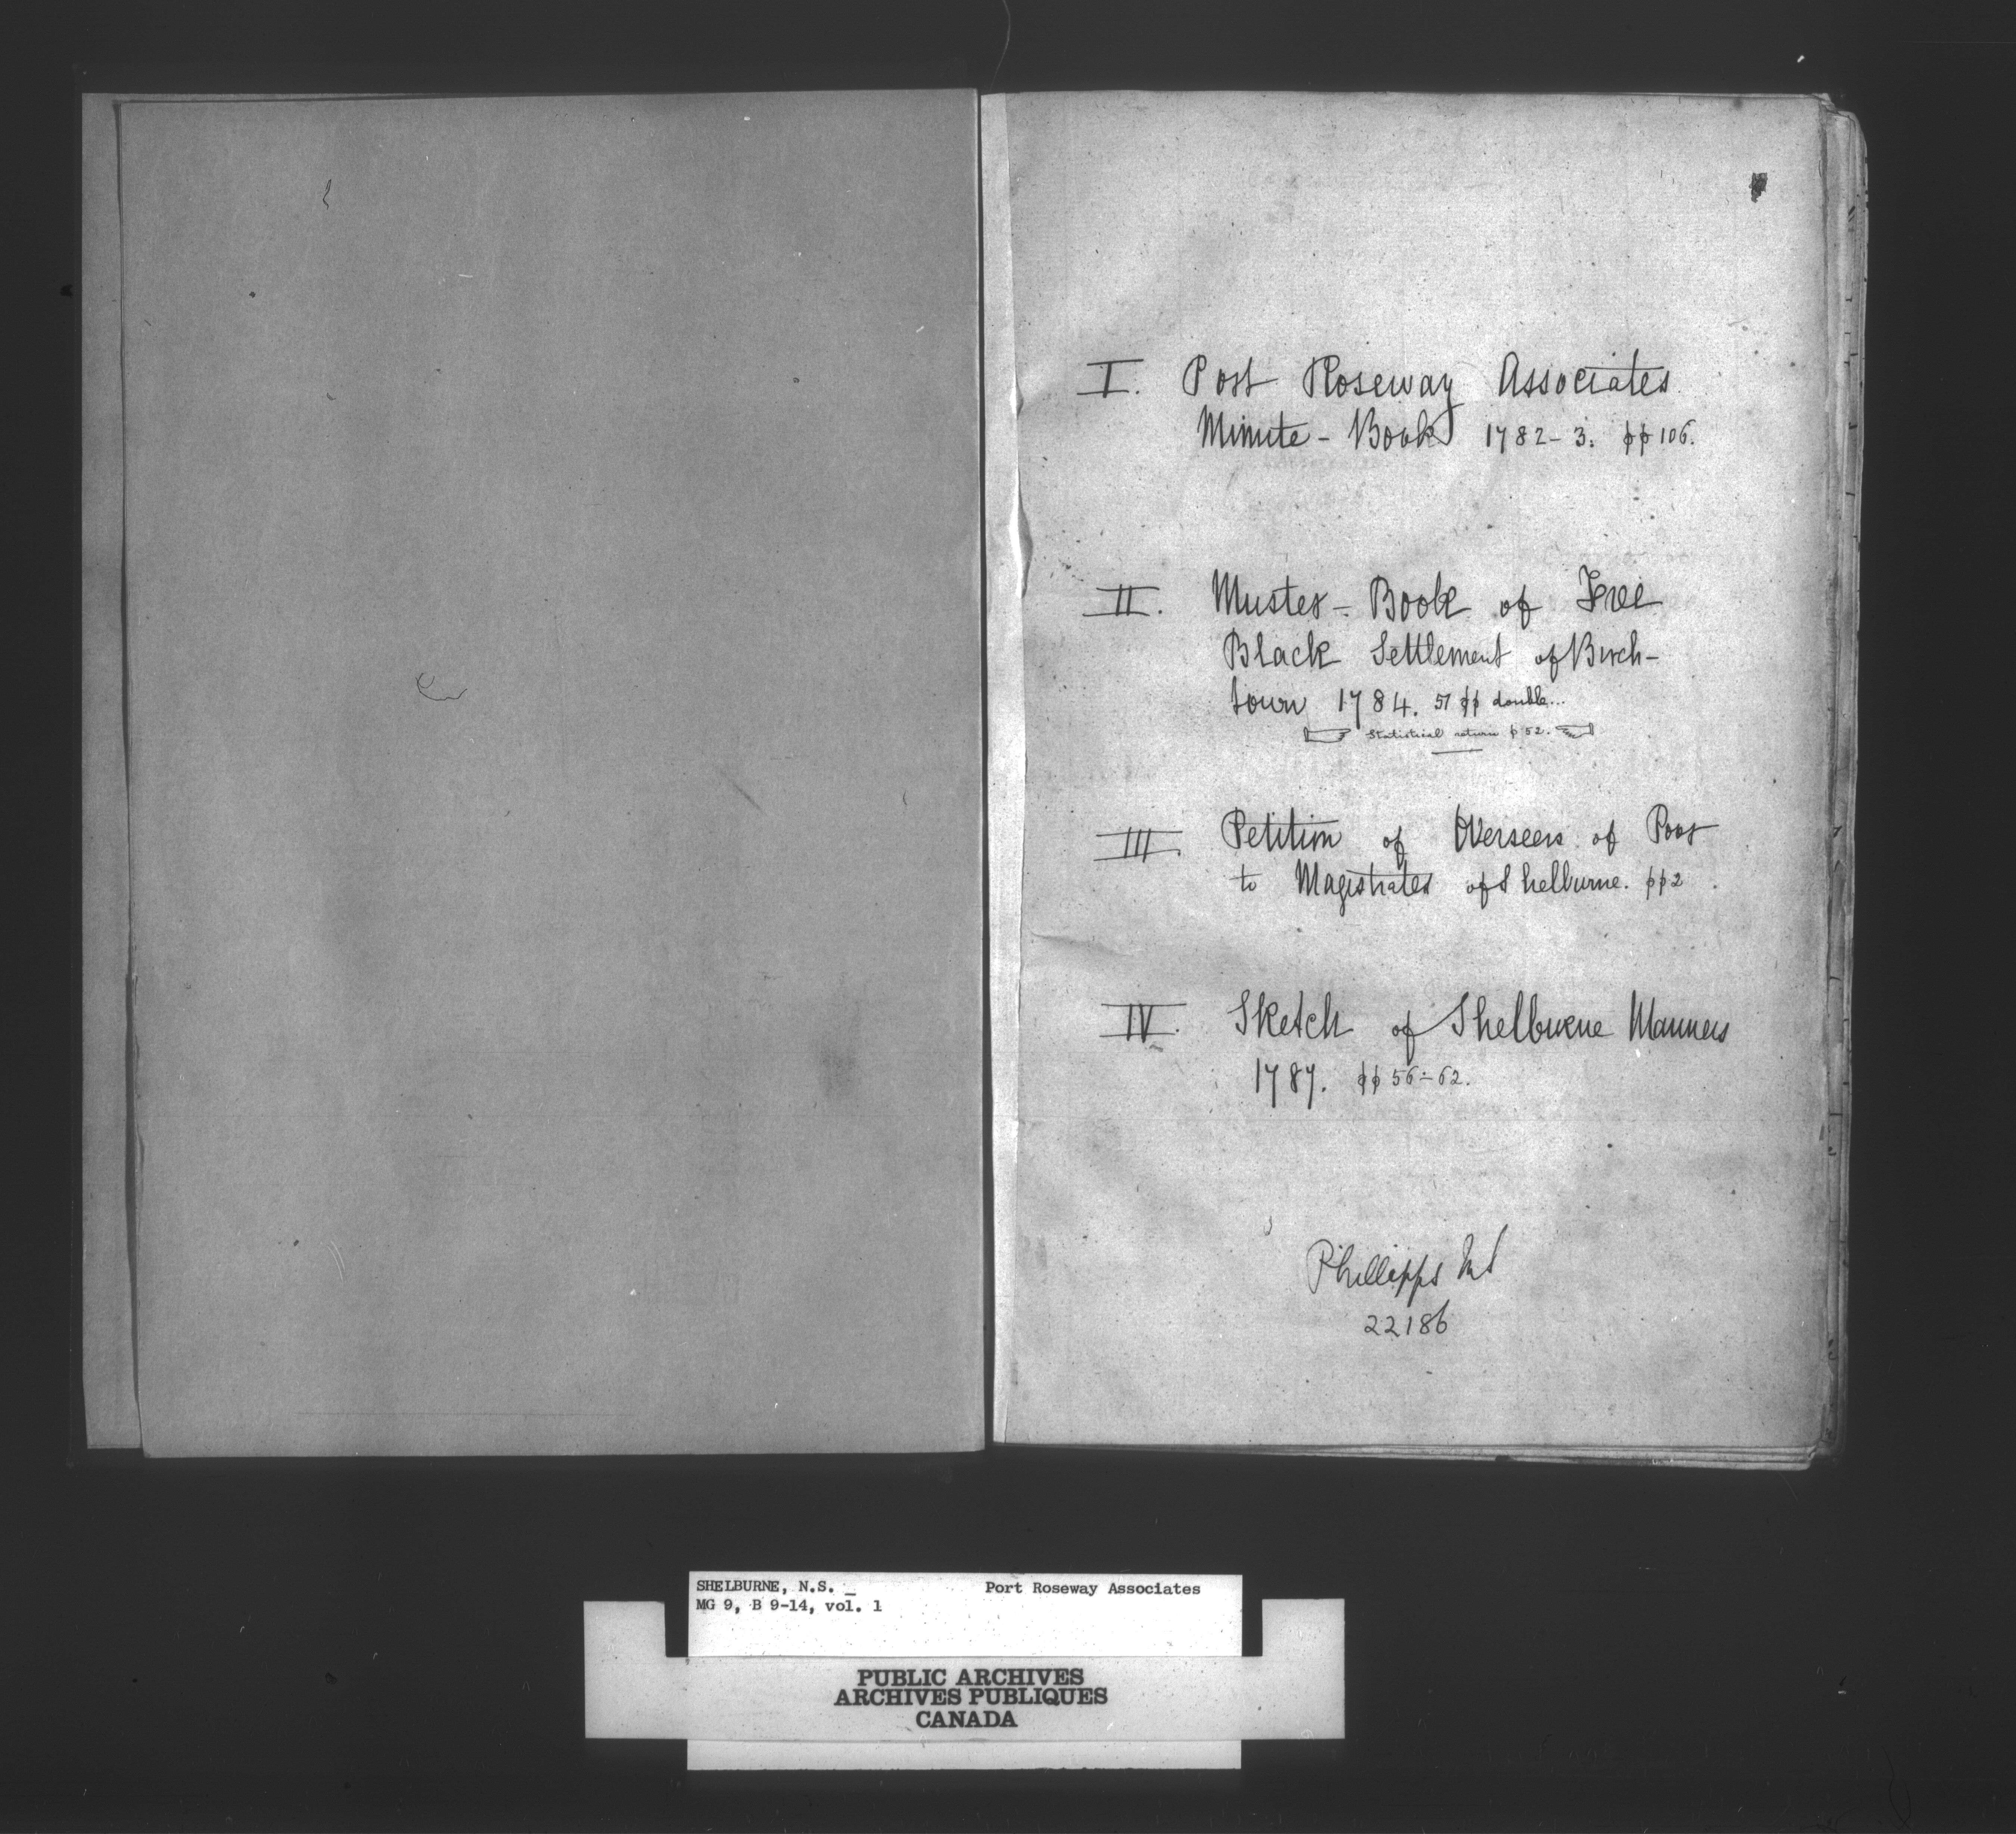 I. Port Roseway Associates
Minute-Book 1782-3. pp 106.
II. Muster-Book of Free
Black Settlement of Birch-
town 1784. 51 pp double...
Statistical return p 52.
III. Petition of Overseers of Poor
to Magistrates of Shelburne. pp 2
IV. Sketch of Shelburne Manners
1787. pp 56-62.
Phillipps MS
22186
SHELBURNE, N.S. _ Port Roseway Associates
MG 9, B 9-14, vol. 1
PUBLIC ARCHIVES
ARCHIVES PUBLIQUES
CANADA